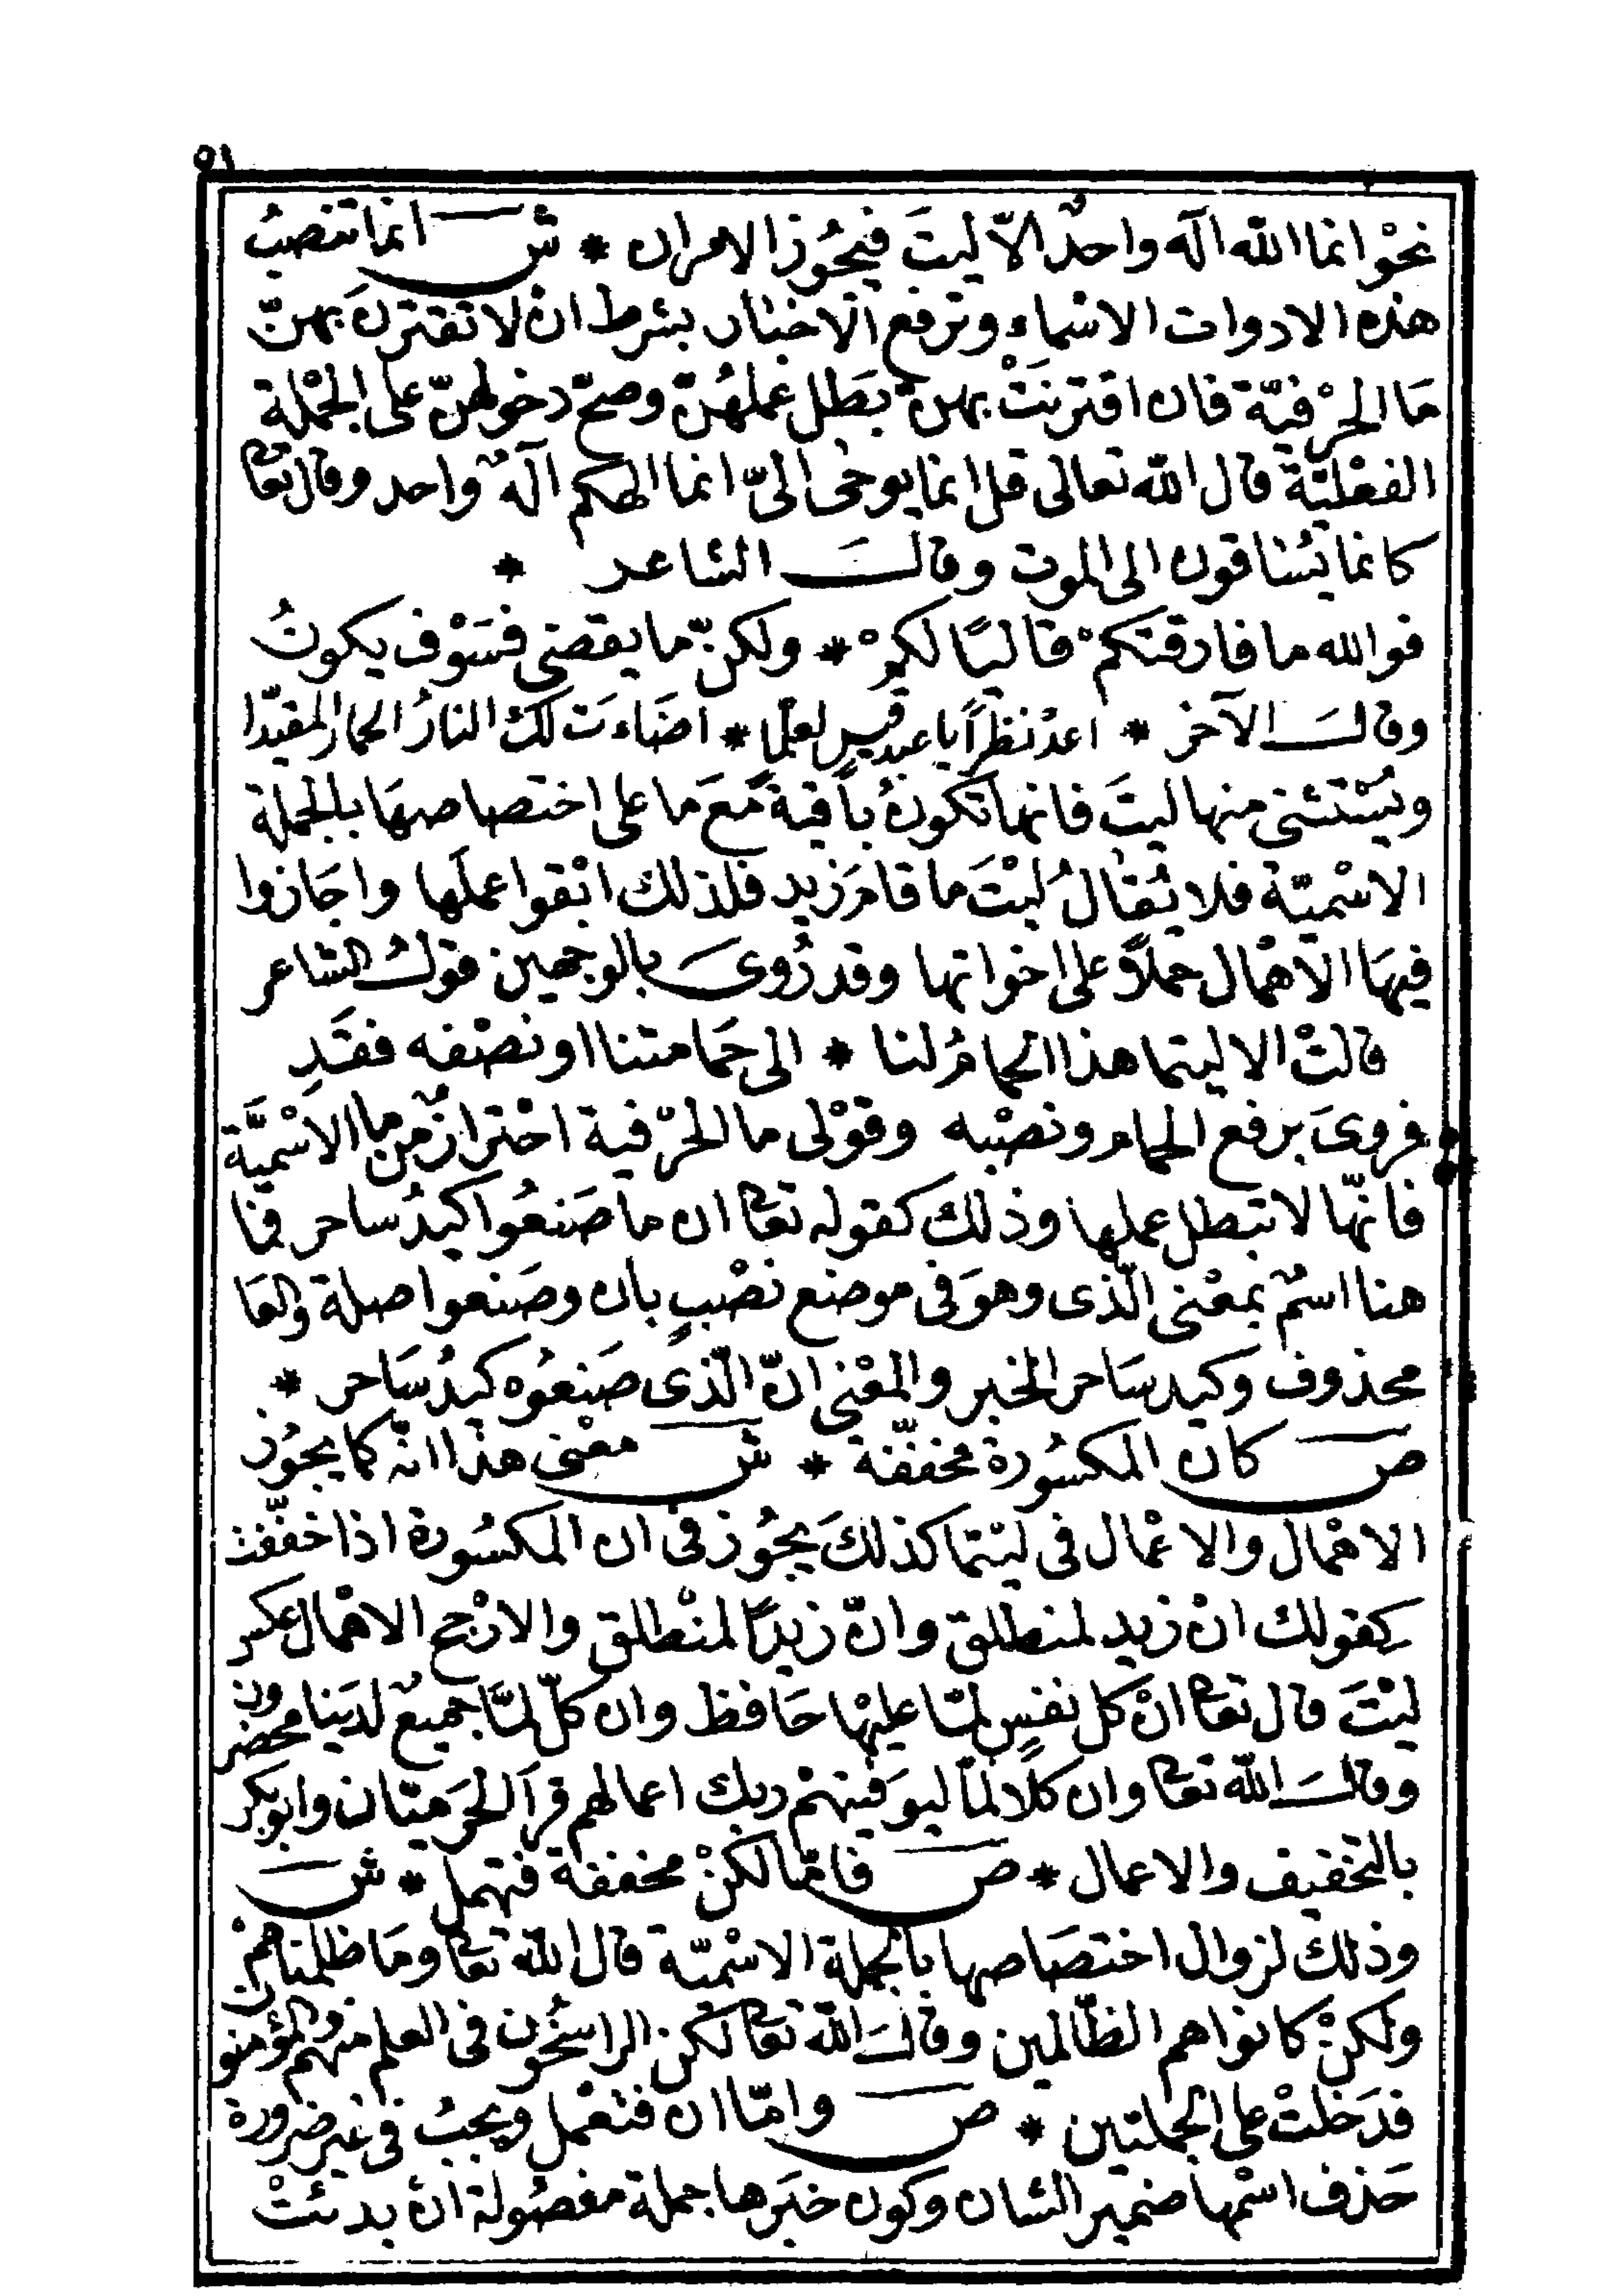 ٥١
نحْوانما الله آله واحدٌ الاّ ليتَ فيجُوز الامران * ش انما تنصبُ
هذه الادوات الاسْماء وترفع الاخبار بشرط انْ لا تقترنَ بهنّ
مَا الحرْفيّة فان اقترنَتْ بهنّ بَطَل عملهُنّ وصحّ دخولهنّ على الجمْلة
الفعْليّة قال الله تعالى قل انما يوحى الىّ انما الهكم آلهٌ واحد وقال تعا
كانما يُساقون الى الموت وقالَ الشاعر *
فوالله ما فارقتكمْ قاليًا لكمْ * ولكنّ ما يقضى فسَوْف يكونُ
وقالَ الآخر * اعدْ نظراً يا عبد قيس لعلّما * اضَاءَت لك النارُ الحمار المقيّدا
ويُسْتثنى منها ليتَ فانها تكونُ باقيةً مَعَ ما على اختصاصهَا بالجملة
الاسْميّة فلا يُقالُ ليْتَ ما قامَ زيد فلذلك ابْقوا عملَها واجَازوا
فيهَا الاهْمال حملاً على اخواتها وقد رُوىَ بالوجهين قولُ الشاعر
قالتْ الا ليتما هذا الحمامُ لنا * الى حَمامتنا او نصْفه فقَدِ
فروىَ برفع الحمام ونصْبه وقوْلى ما الحرْفية احْترازٌ من ما الاسْميَّة
فانّها لا تبطل عملها وذلك كقوله تعا ان ما صَنعُوا كيدُ ساحر فما
هنا اسمٌ بمعْنى الّذى وهوَ فى موضع نصْبٍ بان وصَنعوا صلة والعا
محذوف وكيد سَاحر الخبر والمعْنى انّ الّذى صَنعُوه كيدُ سَاحر *
ص كان المكسُورة مخففّة * ش معْنى هذا انّه كما يجُوز
الاهْمال والاعْمال فى ليْتما كذلكَ يجُوز فى ان المكسُورة اذا خففّت
كقولك انْ زيد لمنطلق وانّ زيدًا لمنْطلق والارْجح الاهْمال عكس
ليْتَ قال تعا انْ كل نفسٍ لمّا عليْها حَافظ وان كلّ لمّا جميعٌ لدَينا محضرون
وقالَ الله تعا وان كلًا لمّا ليوَفينهمْ ربك اعمالهم قرآ الحَرَميّان وابو بكر
بالتخفيف والاعمال * ص فامّا لكنْ مخففة فتهمل * ش
وذلك لزوال اختصَاصها بالجملة الاسْميّة قال الله تعا ومَا ظلمناهمْ
ولكنْ كانوا هم الظّالمين وقالَ الله تعا لكن الراسخُون فى العلم منهم والمؤمنون
فدَخلتْ على الجملتين * ص وامّا ان فتعْمل ويجبُ فى غير ضرورة
حَذف اسْمها ضمير الشان وكون خبَرها جملة مفصُولة انْ بدئتْ